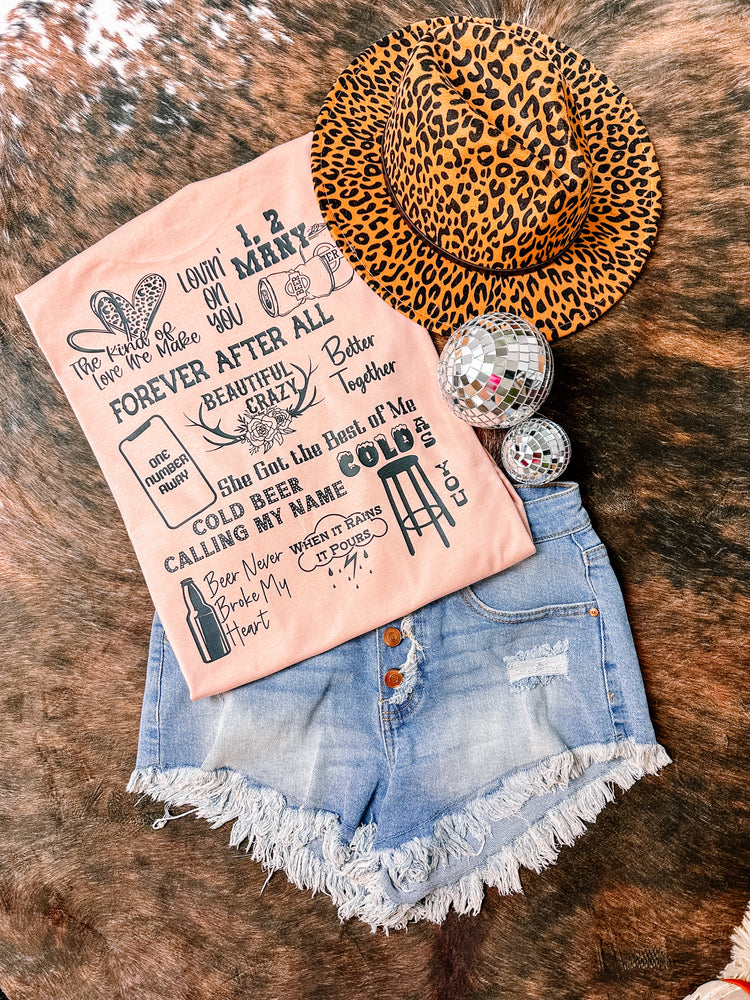 1, 2
MANY
LOVIN'
ON
YOU
BEER
BEER
The Kind of
Love We Make
FOREVER AFTER ALL
BEAUTIFUL
CRAZY
Better
Together
ONE
NUMBER
AWAY
She Got the Best of Me
COLD AS
YOU
COLD BEER
CALLING MY NAME
WHEN IT RAINS
IT POURS
Beer Never
Broke My
Heart